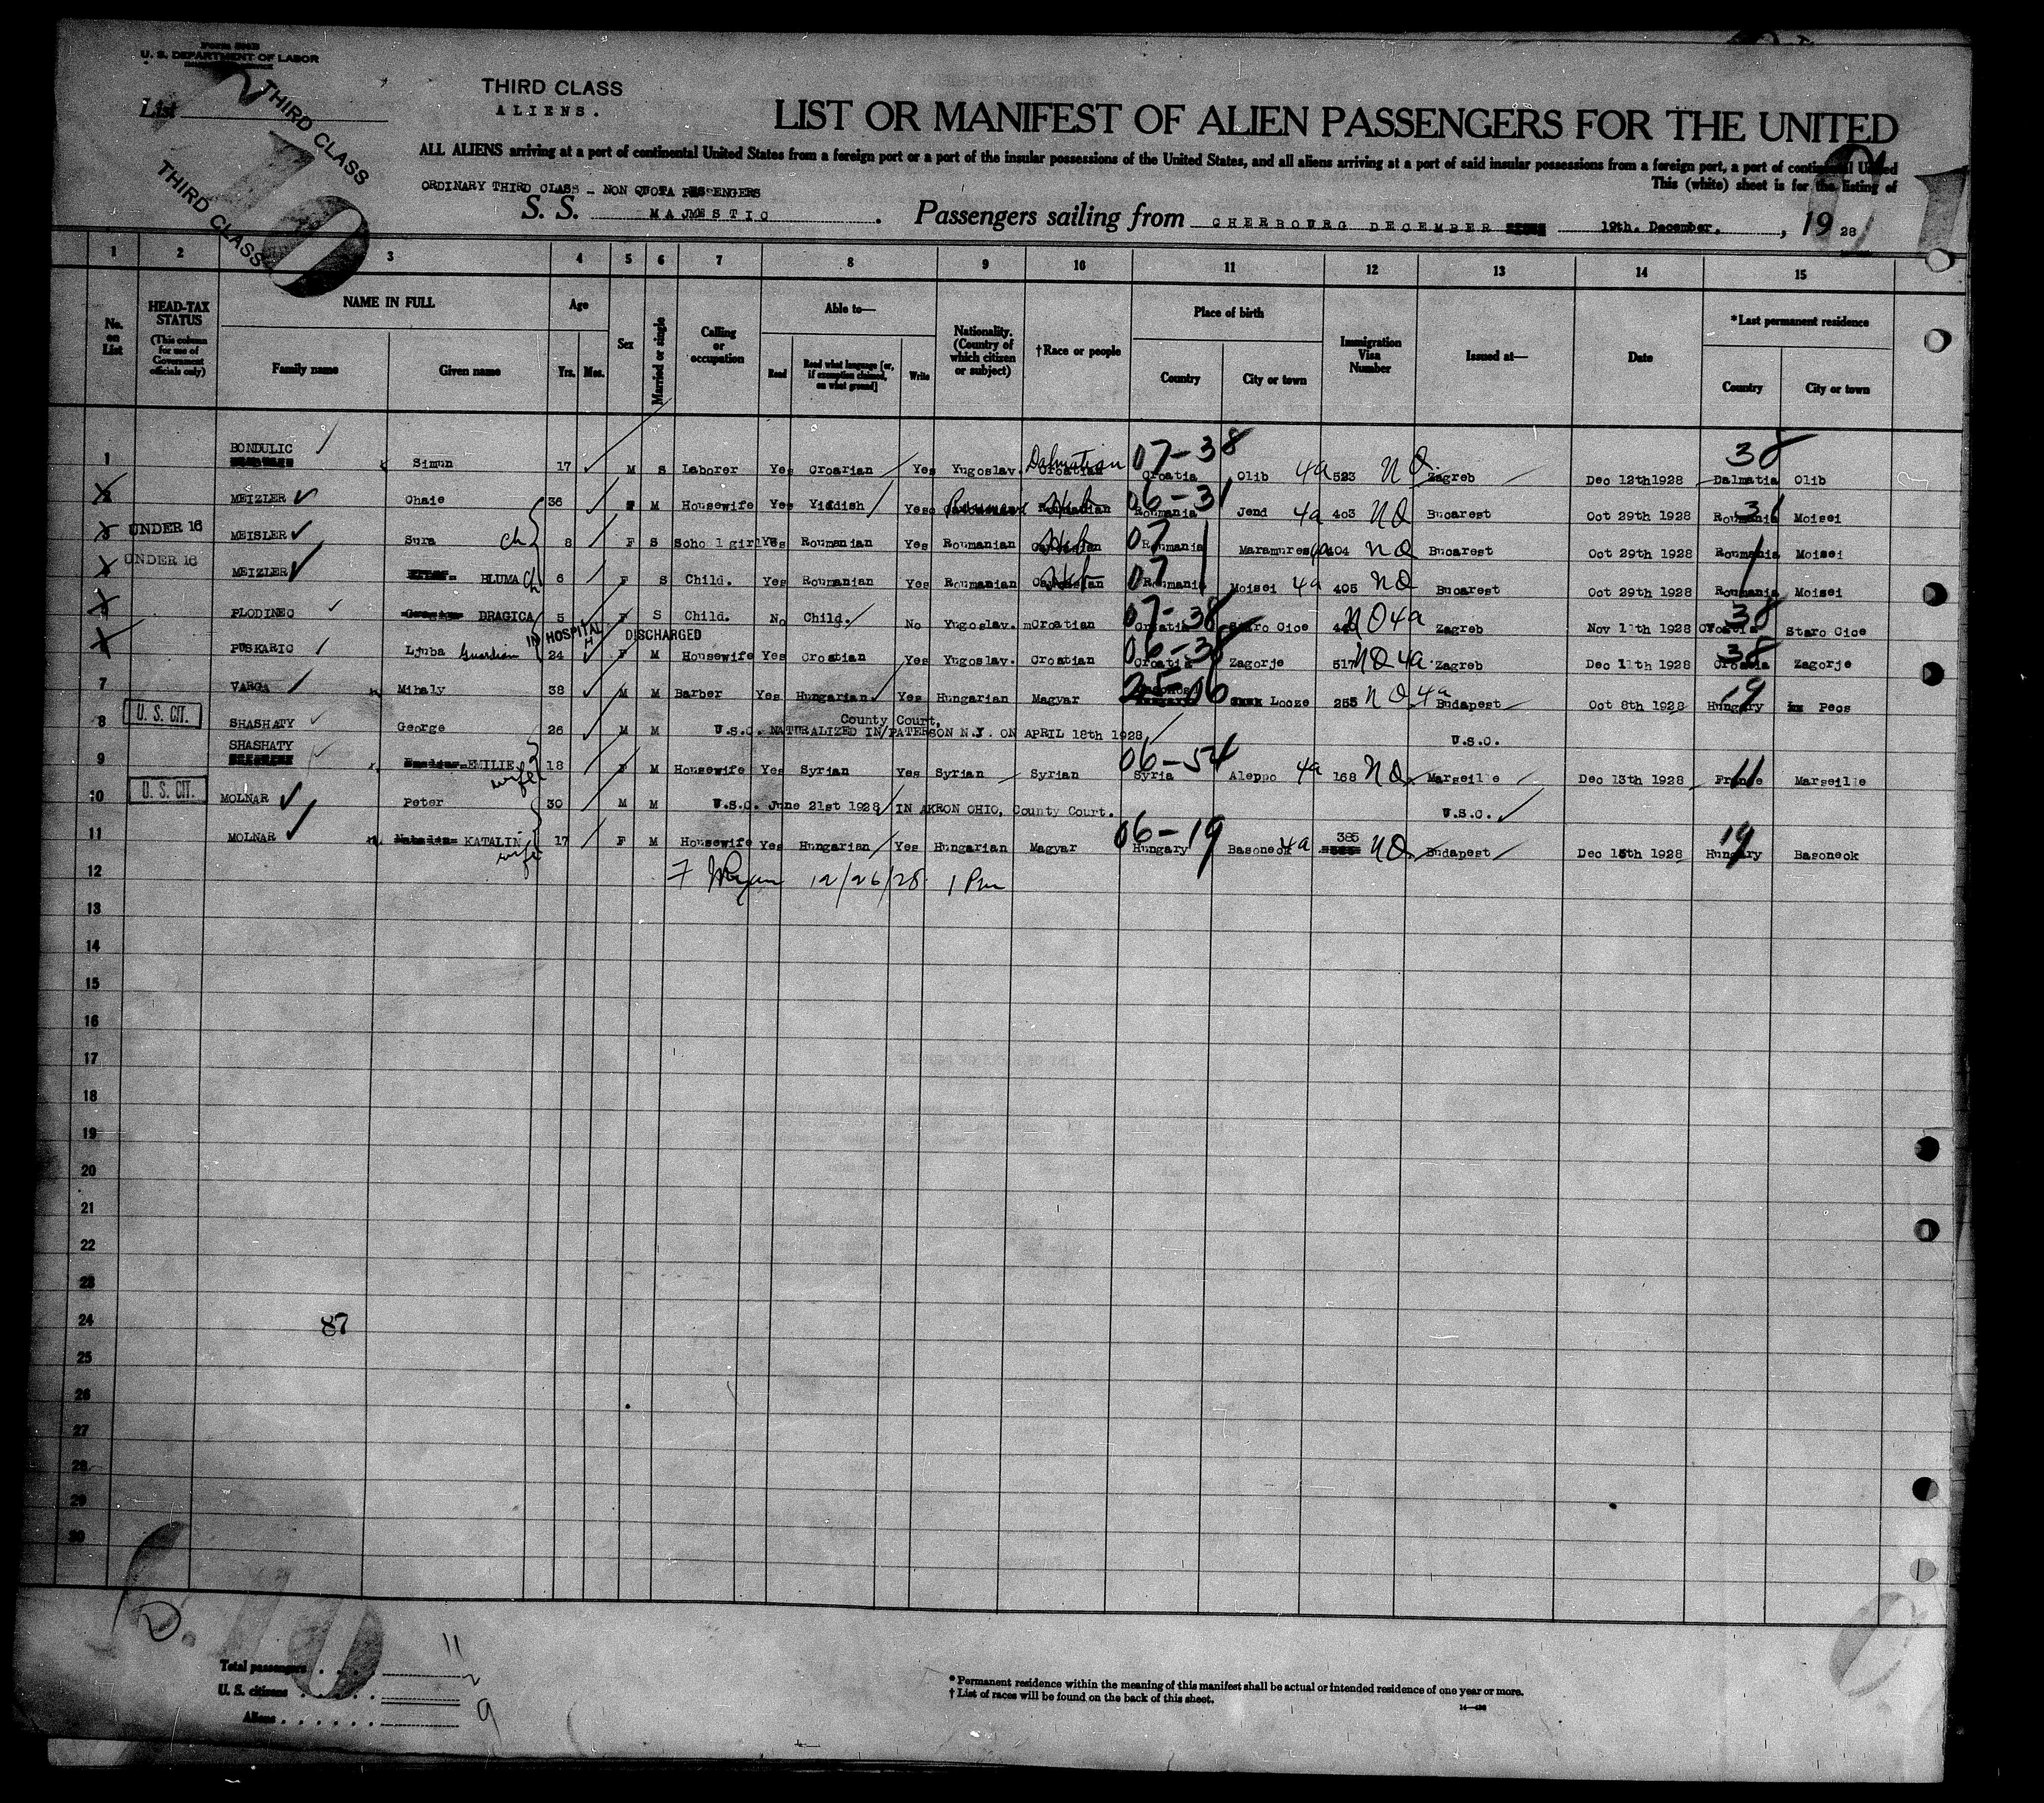 Form 500B
U. S. DEPARTMENT OF LABOR
List 2
THIRD CLASS
THIRD CLASS
10
THIRD CLASS
ALIENS.
LIST OR MANIFEST OF ALIEN PASSENGERS FOR THE UNITED
ALL ALIENS arriving at a port of continental United States from a foreign port or a port of the insular possessions of the United States, and all aliens arriving at a port of said insular possessions from a foreign port, a port of continental United
This (white) sheet is for the listing of
ORDINARY THIRD CLASS - NON QUOTA PASSENGERS
S. S. MAJESTIC. Passengers sailing from CHERBOURG DECEMBER 19th. December, 1928
1 2 3 4 5 6 7 8 9 10 11 12 13 14 15
No. on List
HEAD-TAX STATUS (This column for use of Government officials only)
NAME IN FULL
Family name
Given name
Age
Yrs. Mos.
Sex
Married or single
Calling or occupation
Able to—
Read
Read what language [or, if exemption claimed, on what ground]
Write
Nationality. (Country of which citizen or subject)
†Race or people
Place of birth
Country
City or town
Immigration Visa Number
Issued at—
Date
*Last permanent residence
Country
City or town
1 BONDULIC Simun 17 M S Laborer Yes Croarian Yes Yugoslav. Croatian Dalmatian 07-38 Croatia Olib 4a 523 NQ Zagreb Dec 12th 1928 38 Dalmatia Olib
MEIZLER Chaie 36 F M Housewife Yes Yiddish Yes Roumanian Heb 06-31 Roumania Jend 4a 403 NQ Bucarest Oct 29th 1928 31 Roumania Moisei
UNDER 16 MEISLER Sura ch 8 F S School girl Yes Roumanian Yes Roumanian Heb 07 Roumania Maramures 4a 404 NQ Bucarest Oct 29th 1928 Roumania Moisei
UNDER 16 MEIZLER BLUMA ch 6 F S Child. Yes Roumanian Yes Roumanian Heb 07 Roumania Moisei 4a 405 NQ Bucarest Oct 29th 1928 Roumania Moisei
PLODINEC DRAGICA 5 F S Child. No Child. No Yugoslav. Croatian 07-38 Croatia Staro Cice NQ 4a Zagreb Nov 17th 1928 Croatia 38 Staro Cice
IN HOSPITAL DISCHARGED
PUSKARIC Ljuba Guardian 24 F M Housewife Yes Croatian Yes Yugoslav. Croatian 06-38 Croatia Zagorje 517 NQ 4a Zagreb Dec 11th 1928 38 Croatia Zagorje
7 VARGA Mihaly 38 M M Barber Yes Hungarian Yes Hungarian Magyar 25-06 Looze 255 NQ 4a Budapest Oct 8th 1928 19 Hungary Pecs
8 U. S. CIT. SHASHATY George 26 M M U.S.C. NATURALIZED IN County Court, PATERSON N.J. ON APRIL 18th 1928 U.S.C.
9 SHASHATY EMILIE wife 18 F M Housewife Yes Syrian Yes Syrian Syrian 06-54 Syria Aleppo 4a 168 NQ Marseille Dec 13th 1928 11 France Marseille
10 U. S. CIT. MOLNAR Peter 30 M M U.S.C. June 21st 1928 IN AKRON OHIO, County Court. U.S.C.
11 MOLNAR KATALIN wife 17 F M Housewife Yes Hungarian Yes Hungarian Magyar 06-19 Hungary Basoneck 4a 385 NQ Budapest Dec 15th 1928 19 Hungary Basoneck
12 12/26/28 1 Pm
13
14
15
16
17
18
19
20
21
22
23
24 87
25
26
27
28
29
30
D. 10
Total passengers . . . 11
U. S. citizens . . . . . 2
Aliens . . . . . . 9
* Permanent residence within the meaning of this manifest shall be actual or intended residence of one year or more.
† List of races will be found on the back of this sheet.